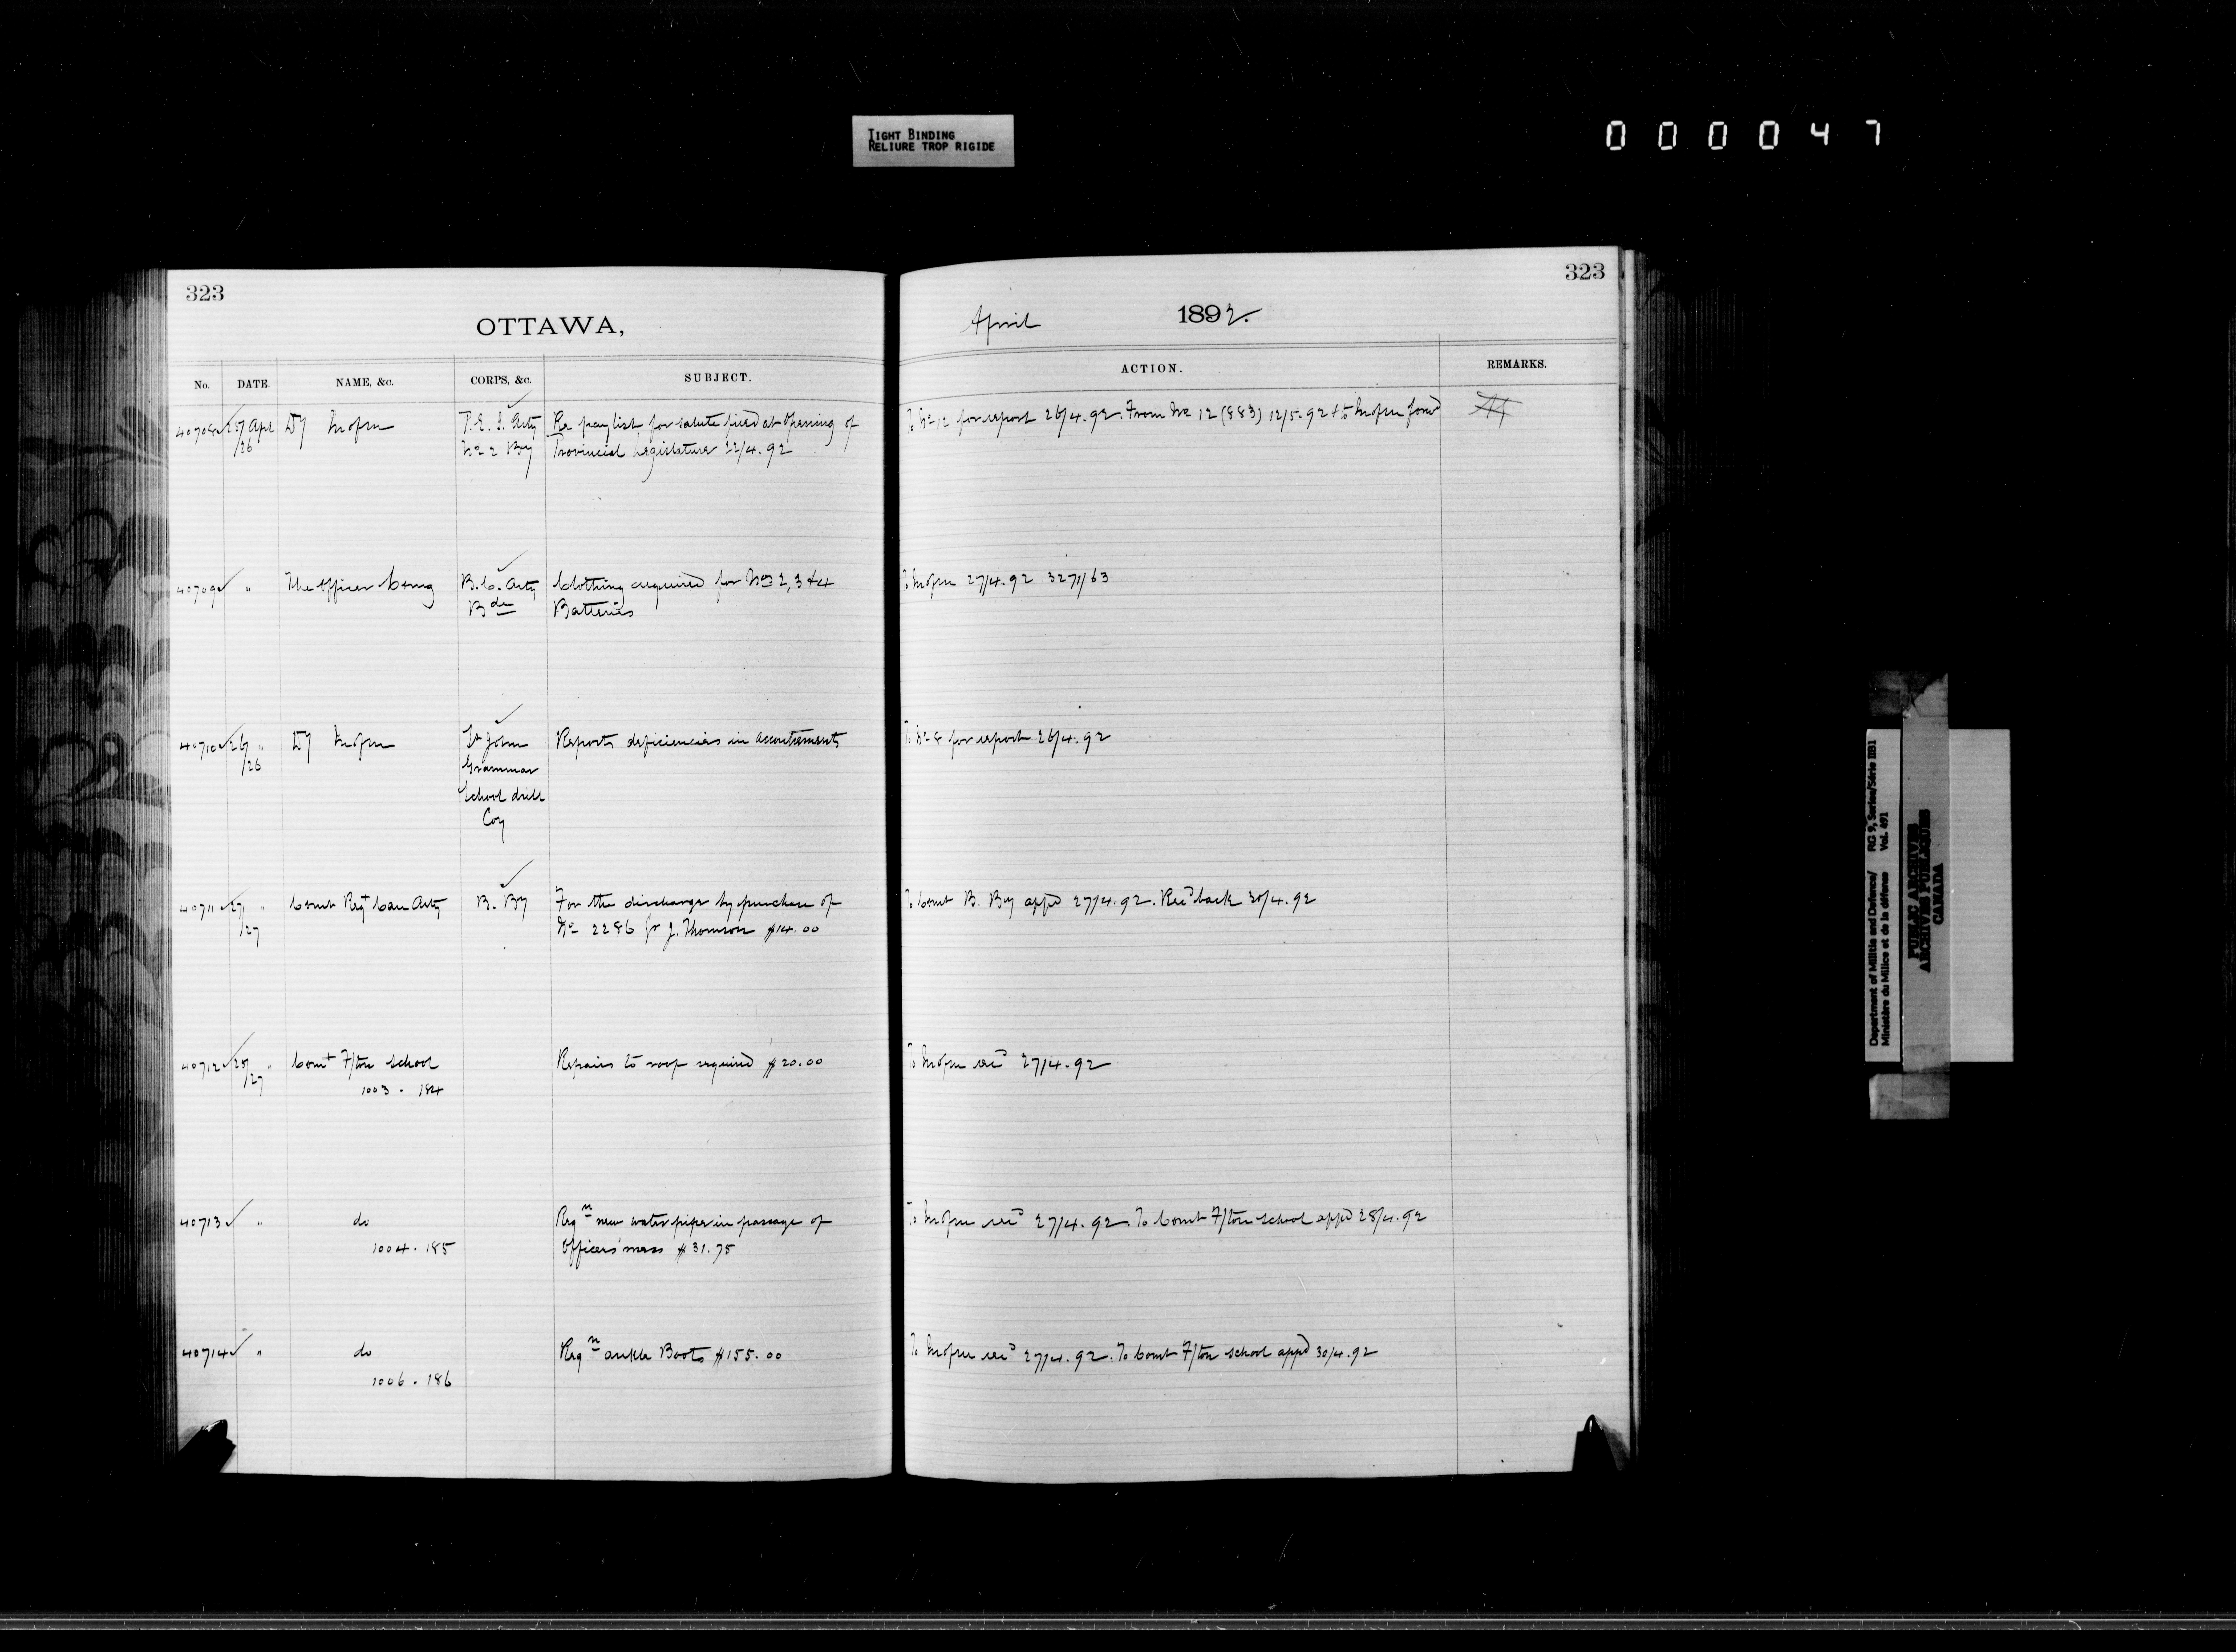 TIGHT BINDING
RELIURE TROP RIGIDE
000047
323
OTTAWA,
323
April 1892.
No. DATE. NAME, &c. CORPS, &c. SUBJECT.
ACTION. REMARKS.
40708 25/26 Apl Dy P.E.I. Arty Re paylist for salute fired at Opening of
No 2 By Provincial Legislature 22/4.92
To No 12 for report 26/4.92. From No 12 (883) 12/5.92 & to
40709 " The Officer Comg B.C. Arty Clothing required for Nos 2, 3 & 4
Bde Batteries
27/4.92 3271/63
40710 26/26 " Dy St John Reports deficiencies in accoutrements
Grammar
School drill
Coy
To No 8 for report 26/4.92
40711 27/27 " Comt Regt Can Arty B. By For the discharge by purchase of
No 2286 Gr J. Thomson $14.00
To Comt B. By appd 27/4.92. Recd back 30/4.92
40712 25/27 " Comt F/ton School Repairs to roof required $20.00
1003 - 184
27/4.92
40713 " do Reqn new water pipe in passage of
1004 - 185 Officers' mess $31.75
27/4.92. To Comt F/ton School appd 28/4.92
40714 " do Reqn ankle Boots $155.00
1006 - 186
27/4.92. To Comt F/ton School appd 30/4.92
Department of Militia and Defence/ RG 9, Series/Série IIB1
Ministère du Milice et de la défense Vol. 491
PUBLIC ARCHIVES
ARCHIVES PUBLIQUES
CANADA